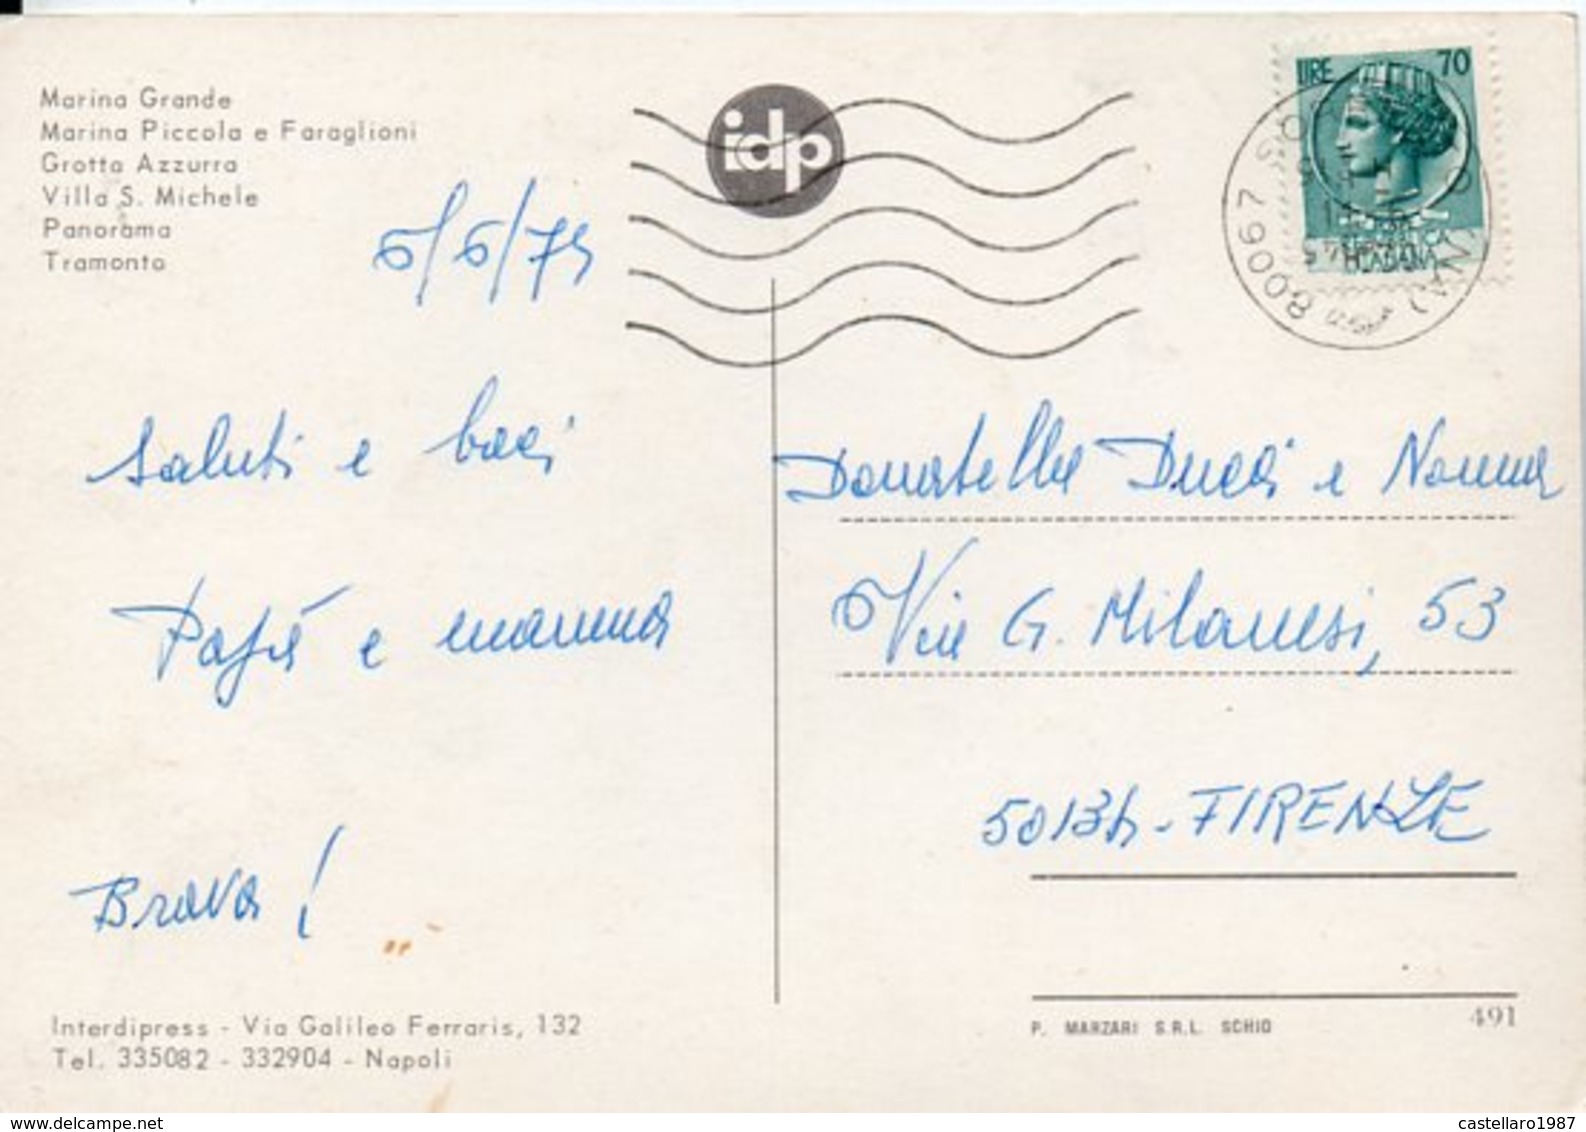 Marina Grande
Marina Piccola e Faraglioni
Grotta Azzurra
Villa S. Michele
Panorama
Tramonto
idp
LIRE 70
80067
Saluti e baci
Papà e mamma
Brava!
Donatella Ducci e Nonna
Via G. Milanesi, 53
50134 - FIRENZE
Interdipress - Via Galileo Ferraris, 132
Tel. 335082 - 332904 - Napoli
P. MARZARI S.R.L. SCHIO
491
www.delcampe.net
castellaro1987